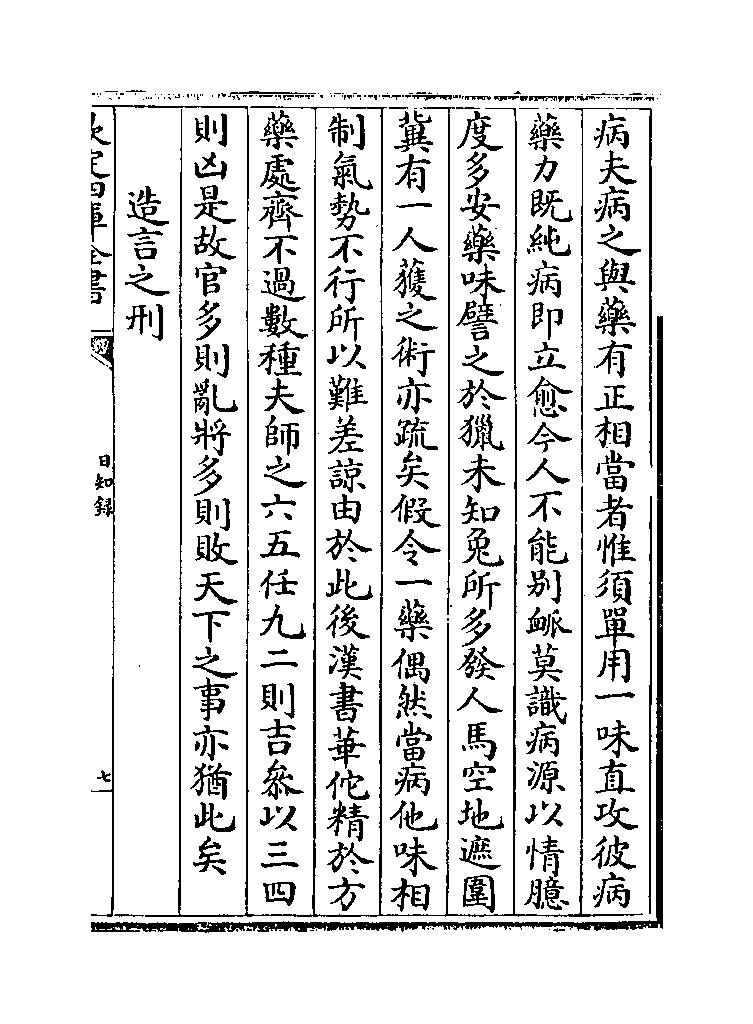 病夫病之與藥有正相當者惟須單用一味直攻彼病
藥力既純病即立愈今人不能别脈莫識病源以情臆
度多安藥味譬之於獵未知兔所多發人馬空地遮圍
冀有一人獲之術亦疏矣假令一藥偶然當病他味相
制氣勢不行所以難差諒由於此後漢書華佗精於方
藥處齊不過數種夫師之六五任九二則吉參以三四
則凶是故官多則亂將多則敗天下之事亦猶此矣
造言之刑
欽定四庫全書
日知錄
七